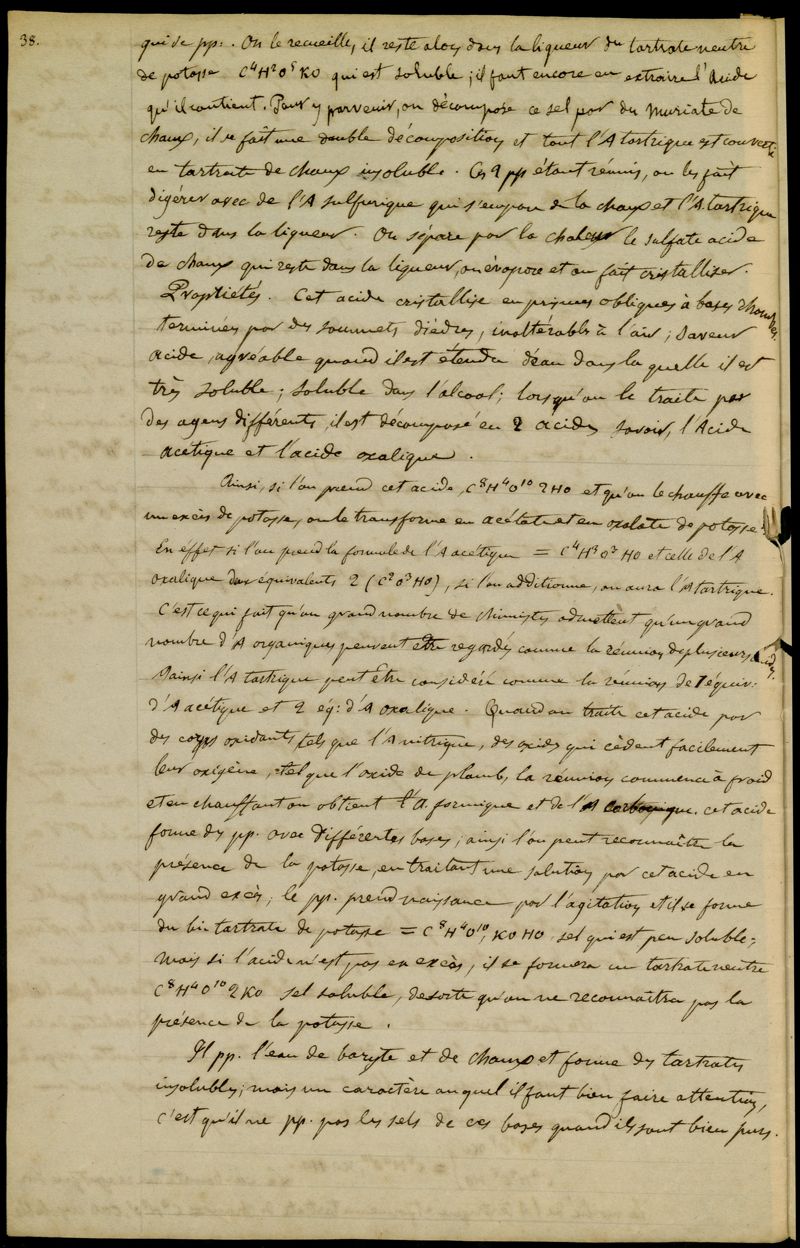 38.
qui se pp:. On le recueille, il reste alors dans la liqueur du tartrate neutre
de potasse C⁴H²O⁵KO qui est soluble ; il faut encore en extraire l'Acide
qu'il contient. Pour y parvenir, on décompose ce sel par du Muriate de
chaux, il se fait une double décomposition et tout l'A tartrique est converti
en tartrate de chaux insoluble. Ces 2 pp étant réunis, on les fait
digérer avec de l'A sulfurique qui s'empare de la chaux et l'A. tartrique
reste dans la liqueur. On sépare par la chaleur le sulfate acide
de chaux qui reste dans la liqueur, on évapore et on fait cristalliser.
Propriétés. Cet acide cristallise en prismes obliques à bases rhombes
terminées par des sommets dièdres, inaltérable à l'air ; saveur
acide, agréable quand il est étendu d'eau dans la quelle il est
très soluble ; soluble dans l'alcool ; lorsqu'on le traite par
des agens différents, il est décomposé en 2 acides savoir, l'Acide
acétique et l'acide oxalique.
Ainsi, si l'on prend cet acide, C⁸H⁴O¹⁰ 2HO et qu'on le chauffe avec
un excès de potasse, on le transforme en acétate et en oxalate de potasse.
En éffet si l'on prend la formule de l'A acétique = C⁴H³O³ HO et celle de l'A
oxalique deux équivalents 2 (C²O³HO), si l'on additionne, on aura l'A tartrique.
C'est ce qui fait qu'un grand nombre de chimistes admettent qu'un grand
nombre d'A organiques peuvent être regardés comme la réunion de plusieurs acides.
Dainsi l'A tartrique peut être considéré comme la réunion de 1 équiv:
d'A acétique et 2 éq: d'A oxalique. Quand on traite cet acide par
des corps oxidants, tels que l'A nitrique, des oxides qui cèdent facilement
leur oxigène, tel que l'oxide de plomb, la réunion commence à froid
et en chauffant on obtient l'A. formique et de l'A carbonique. cet acide
forme des pp. avec différentes bases ; ainsi l'on peut reconnaître la
présence de la potasse, en traitant une solution par cet acide en
grand excès, le pp. prend naissance par l'agitation et il se forme
du bi tartrate de potasse = C⁸H⁴O¹⁰, KO HO sel qui est peu soluble ;
mais si l'acide n'est pas en excès, il se formera un tartrate neutre
C⁸H⁴O¹⁰ 2KO sel soluble, de sorte qu'on ne reconnaîtra pas la
présence de la potasse.
Il pp. l'eau de baryte et de chaux et forme des tartrates
insolubles ; mais un caractère auquel il faut bien faire attention,
c'est qu'il ne pp. pas les sels de ces bases quand ils sont bien purs.